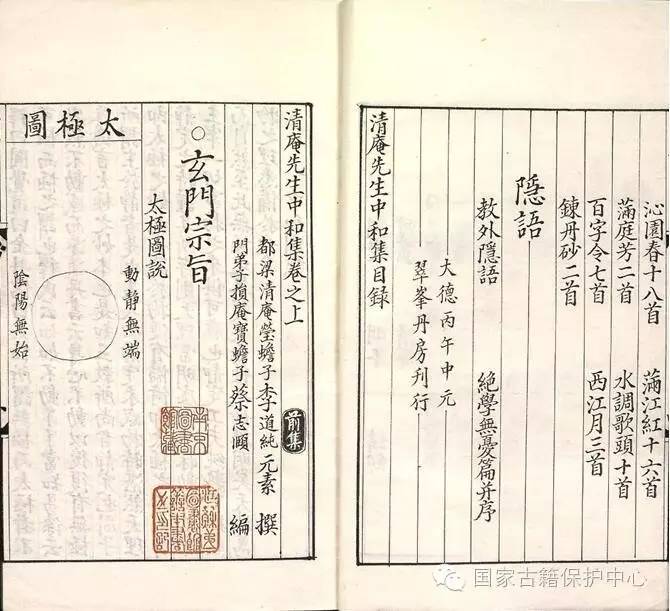 沁園春十八首 滿江紅十六首
滿庭芳二首 水調歌頭十首
百字令七首 西江月三首
鍊丹砂二首
隱語
教外隱語 絕學無憂篇并序
大德丙午中元
翠峯丹房刊行
清庵先生中和集目錄
清庵先生中和集卷之上 前集
都梁清庵瑩蟾子李道純元素 撰
門弟子損庵寶蟾子蔡志頤 編
玄門宗旨
太極圖說
南京圖書館藏
太極圖
動靜無端
陰陽無始
国家古籍保护中心